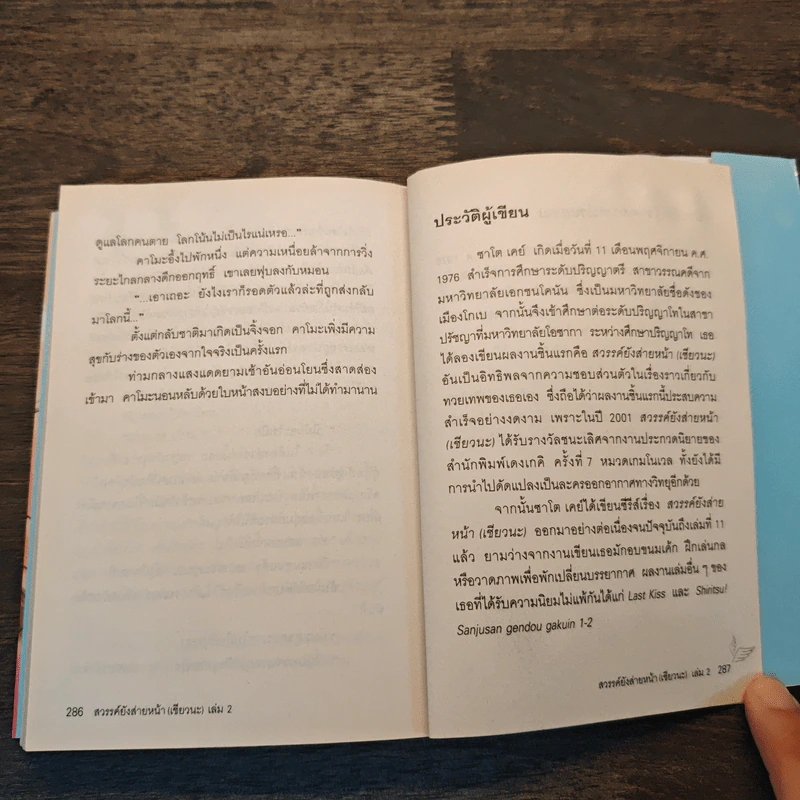 ดูแลโลกคนตาย โลกโน้นไม่เป็นไรแน่เหรอ..."
คาโมะอึ้งไปพักหนึ่ง แต่ความเหนื่อยล้าจากการวิ่ง
ระยะไกลกลางดึกออกฤทธิ์ เขาเลยฟุบลงกับหมอน
"...เอาเถอะ ยังไงเราก็รอดตัวแล้วล่ะที่ถูกส่งกลับ
มาโลกนี้..."
ตั้งแต่กลับชาติมาเกิดเป็นจิ้งจอก คาโมะเพิ่งมีความ
สุขกับร่างของตัวเองจากใจจริงเป็นครั้งแรก
ท่ามกลางแสงแดดยามเช้าอันอ่อนโยนซึ่งสาดส่อง
เข้ามา คาโมะนอนหลับด้วยใบหน้าสงบอย่างที่ไม่ได้ทำมานาน
286 สวรรค์ยังส่ายหน้า (เชียวนะ) เล่ม 2
ประวัติผู้เขียน
ซาโต เคย์ เกิดเมื่อวันที่ 11 เดือนพฤศจิกายน ค.ศ.
1976 สำเร็จการศึกษาระดับปริญญาตรี สาขาวรรณคดีจาก
มหาวิทยาลัยเอกชนโคนัน ซึ่งเป็นมหาวิทยาลัยชื่อดังของ
เมืองโกเบ จากนั้นจึงเข้าศึกษาต่อระดับปริญญาโทในสาขา
ปรัชญาที่มหาวิทยาลัยโอซากา ระหว่างศึกษาปริญญาโท เธอ
ได้ลองเขียนผลงานชิ้นแรกคือ สวรรค์ยังส่ายหน้า (เชียวนะ)
อันเป็นอิทธิพลจากความชอบส่วนตัวในเรื่องราวเกี่ยวกับ
ทวยเทพของเธอเอง ซึ่งถือได้ว่าผลงานชิ้นแรกนี้ประสบความ
สำเร็จอย่างงดงาม เพราะในปี 2001 สวรรค์ยังส่ายหน้า
(เชียวนะ) ได้รับรางวัลชนะเลิศจากงานประกวดนิยายของ
สำนักพิมพ์เดงเกคิ ครั้งที่ 7 หมวดเกมโนเวล ทั้งยังได้มี
การนำไปดัดแปลงเป็นละครออกอากาศทางวิทยุอีกด้วย
จากนั้นซาโต เคย์ได้เขียนซีรีส์เรื่อง สวรรค์ยังส่าย
หน้า (เชียวนะ) ออกมาอย่างต่อเนื่องจนปัจจุบันถึงเล่มที่ 11
แล้ว ยามว่างจากงานเขียนเธอมักอบขนมเค้ก ฝึกเล่นกล
หรือวาดภาพเพื่อพักเปลี่ยนบรรยากาศ ผลงานเล่มอื่น ๆ ของ
เธอที่ได้รับความนิยมไม่แพ้กันได้แก่ Last Kiss และ Shiritsu!
Sanjusan gendou gakuin 1-2
สวรรค์ยังส่ายหน้า (เชียวนะ) เล่ม 2 287